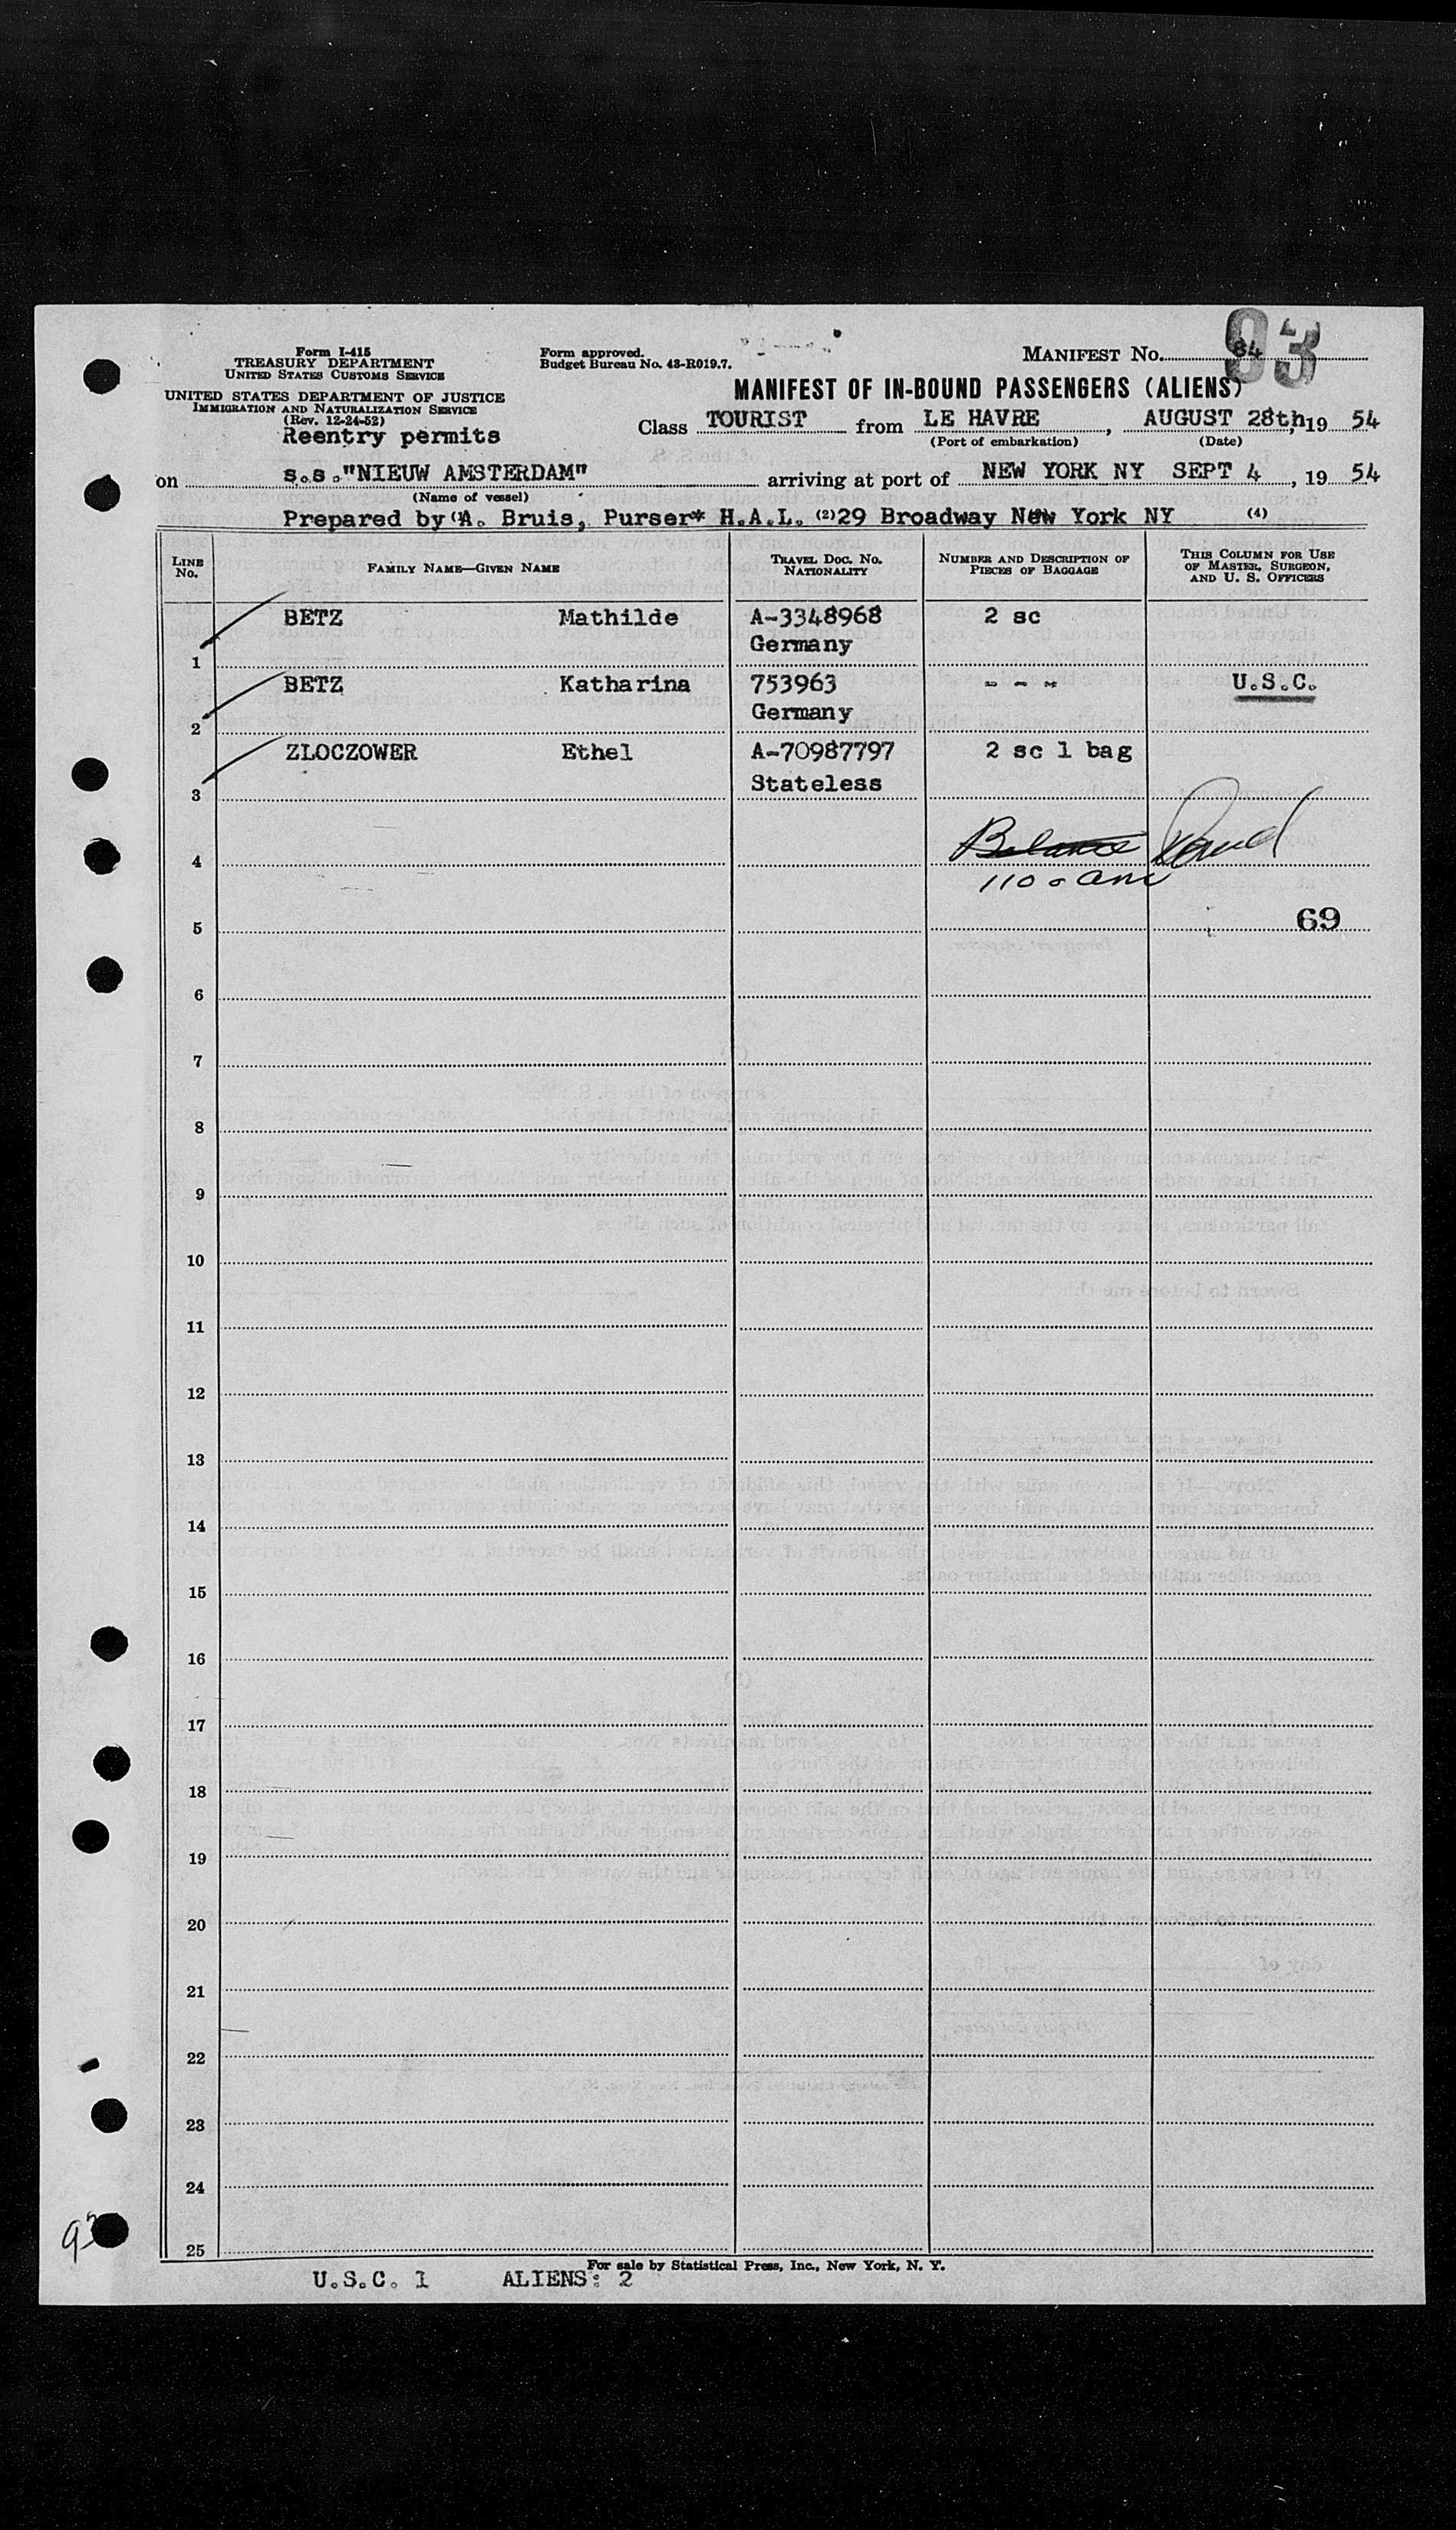 Form I-415
TREASURY DEPARTMENT
UNITED STATES CUSTOMS SERVICE
UNITED STATES DEPARTMENT OF JUSTICE
IMMIGRATION AND NATURALIZATION SERVICE
(Rev. 12-24-52)
Reentry permits
Form approved.
Budget Bureau No. 43-R019.7.
MANIFEST No. 84
93
MANIFEST OF IN-BOUND PASSENGERS (ALIENS)
Class TOURIST from LE HAVRE, AUGUST 28th, 19 54
(Port of embarkation) (Date)
on s.s. "NIEUW AMSTERDAM" arriving at port of NEW YORK NY SEPT 4, 19 54
(Name of vessel)
Prepared by (A. Bruis, Purser* H.A.L. (2) 29 Broadway New York NY (4)
LINE No. FAMILY NAME—GIVEN NAME TRAVEL DOC. NO. NATIONALITY NUMBER AND DESCRIPTION OF PIECES OF BAGGAGE THIS COLUMN FOR USE OF MASTER, SURGEON, AND U. S. OFFICERS
1 BETZ Mathilde A-3348968 Germany 2 sc
2 BETZ Katharina 753963 Germany - - - U.S.C.
3 ZLOCZOWER Ethel A-70987797 Stateless 2 sc 1 bag
4 Balance
110
5 69
6
7
8
9
10
11
12
13
14
15
16
17
18
19
20
21
22
23
24
25
93
For sale by Statistical Press, Inc., New York, N. Y.
U.S.C. 1 ALIENS: 2